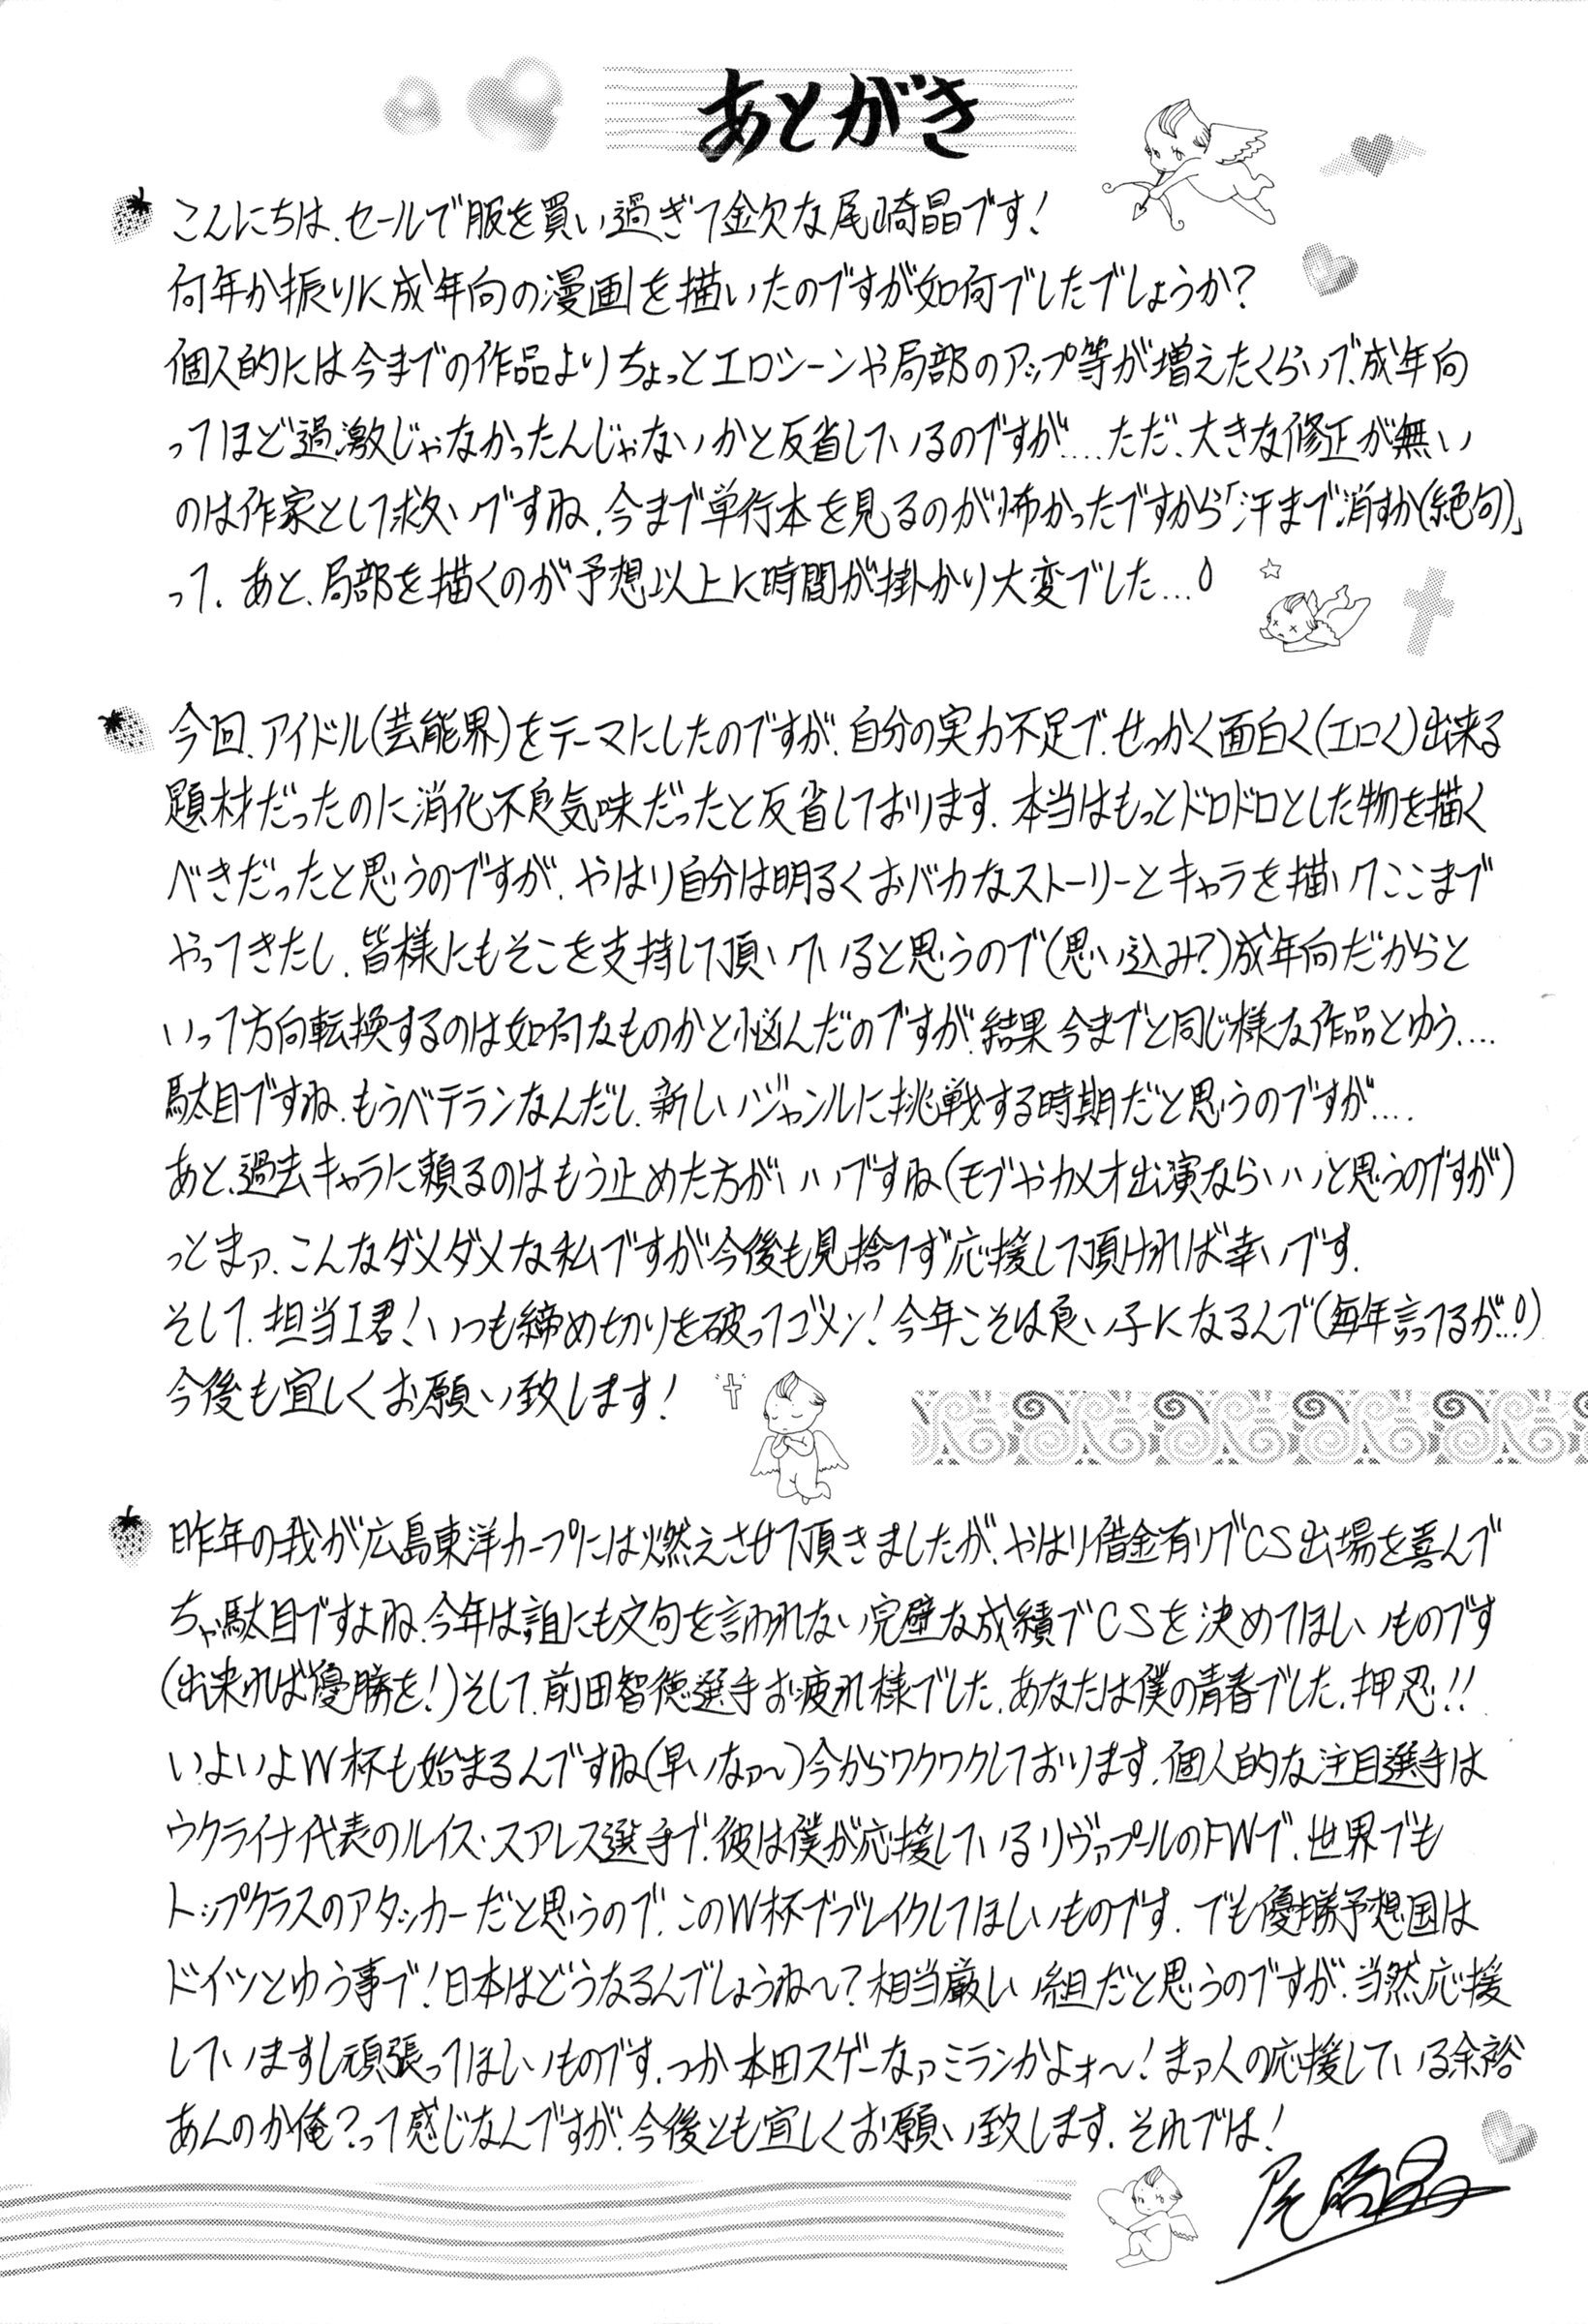 あとがき
こんにちは、セールで服を買い過ぎて金欠な尾崎晶です!
何年か振りに成年向の漫画を描いたのですが如何でしたでしょうか?
個人的には今までの作品よりちょっとエロシーンや局部のアップ等が増えたくらいで、成年向
ってほど過激じゃなかったんじゃないかと反省しているのですが…。ただ、大きな修正が無い
のは作家として救いですね。今まで単行本を見るのが怖かったですから「汗まで消すか(絶句)」
って。あと、局部を描くのが予想以上に時間が掛かり大変でした…
今回、アイドル(芸能界)をテーマにしたのですが、自分の実力不足で、せっかく面白く(エロく)出来る
題材だったのに消化不良気味だったと反省しております。本当はもっとドロドロとした物を描く
べきだったと思うのですが、やはり自分は明るくおバカなストーリーとキャラを描いてここまで
やってきたし、皆様にもそこを支持して頂いていると思うので(思い込み?)成年向だからと
いって方向転換するのは如何なものかと悩んだのですが、結果今までと同じ様な作品とゆう…。
駄目ですね、もうベテランなんだし、新しいジャンルに挑戦する時期だと思うのですが…。
あと、過去キャラに頼るのはもう止めた方がいいですね(モブやカメオ出演ならいいと思うのですが)
っとまァ、こんなダメダメな私ですが今後も見捨てず応援して頂ければ幸いです。
そして、担当I君!いつも締め切りを破ってゴメン!今年こそは良い子になるんで(毎年言ってるが…)
今後も宜しくお願い致します!
昨年の我が広島東洋カープには燃えさせて頂きましたが、やはり借金有りでCS出場を喜んで
ちゃ駄目ですよね。今年は誰にも文句を言われない完璧な成績でCSを決めてほしいものです
(出来れば優勝を!)そして、前田智徳選手お疲れ様でした。あなたは僕の青春でした。押忍!!
いよいよW杯も始まるんですね(早いなァ〜)今からワクワクしております。個人的な注目選手は
ウクライナ代表のルイス・スアレス選手で、彼は僕が応援しているリヴァプールのFWで、世界でも
トップクラスのアタッカーだと思うので、このW杯でブレイクしてほしいものです。でも優勝予想国は
ドイツとゆう事で!日本はどうなるんでしょうね〜?相当厳しい組だと思うのですが、当然応援
していますし頑張ってほしいものです。つか本田スゲーなァミランかよォ〜!まァ人の応援している余裕
あんのか俺?って感じなんですが、今後とも宜しくお願い致します。それでは!
尾崎晶